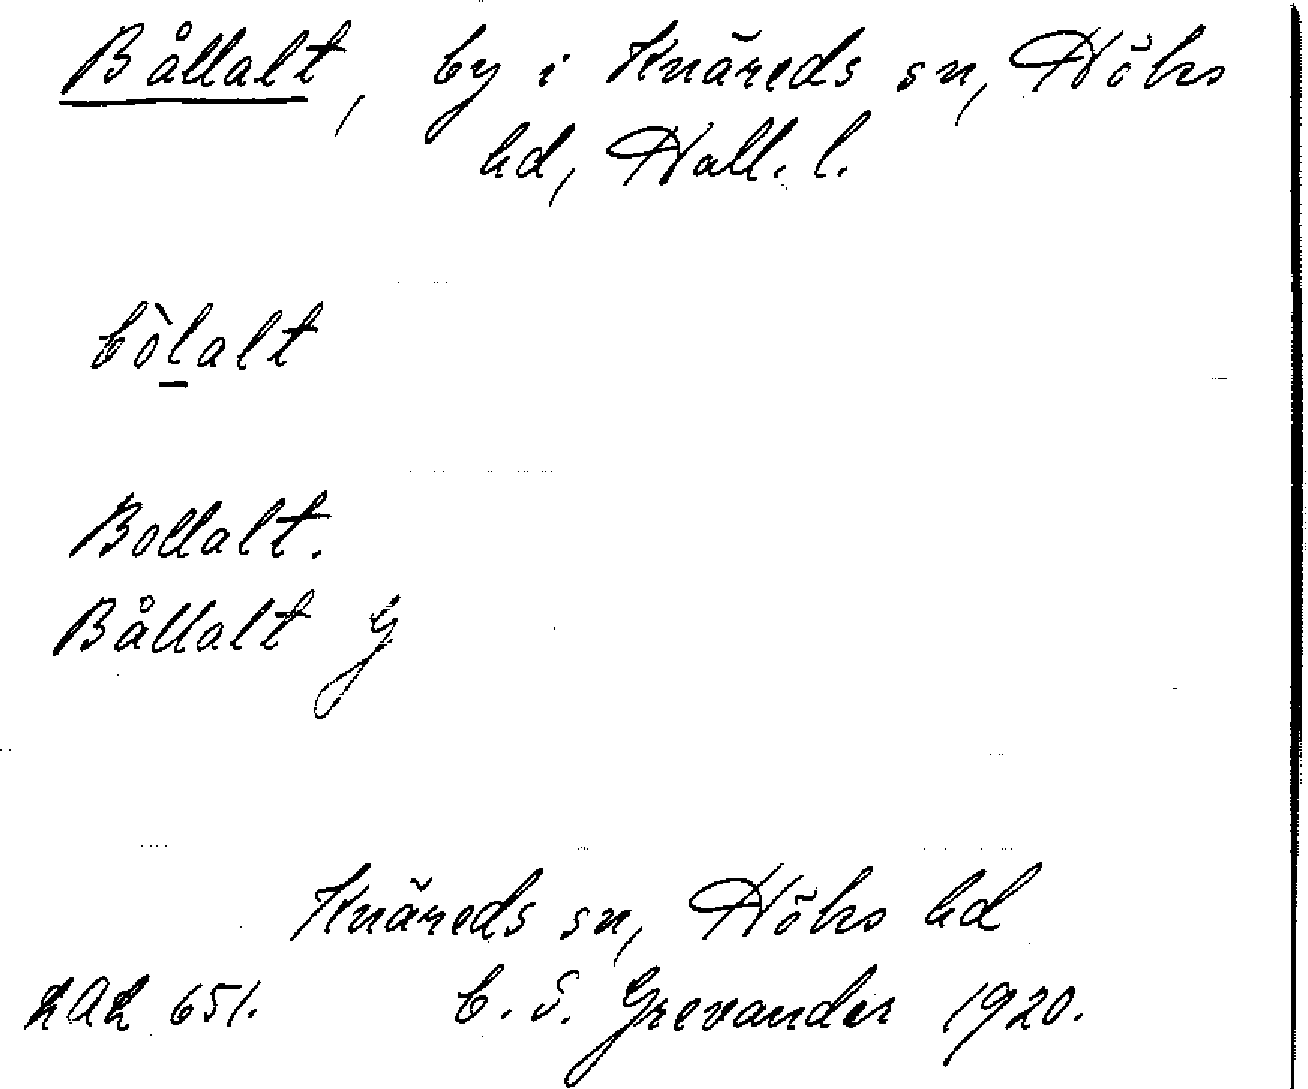 Bållalt, by i Knäreds sn, Höks
hd, Hall. l.
bòlalt
Bollalt.
Bållalt G
Knäreds sn, Höks hd
LAL 651. C. S. Grevander 1920.